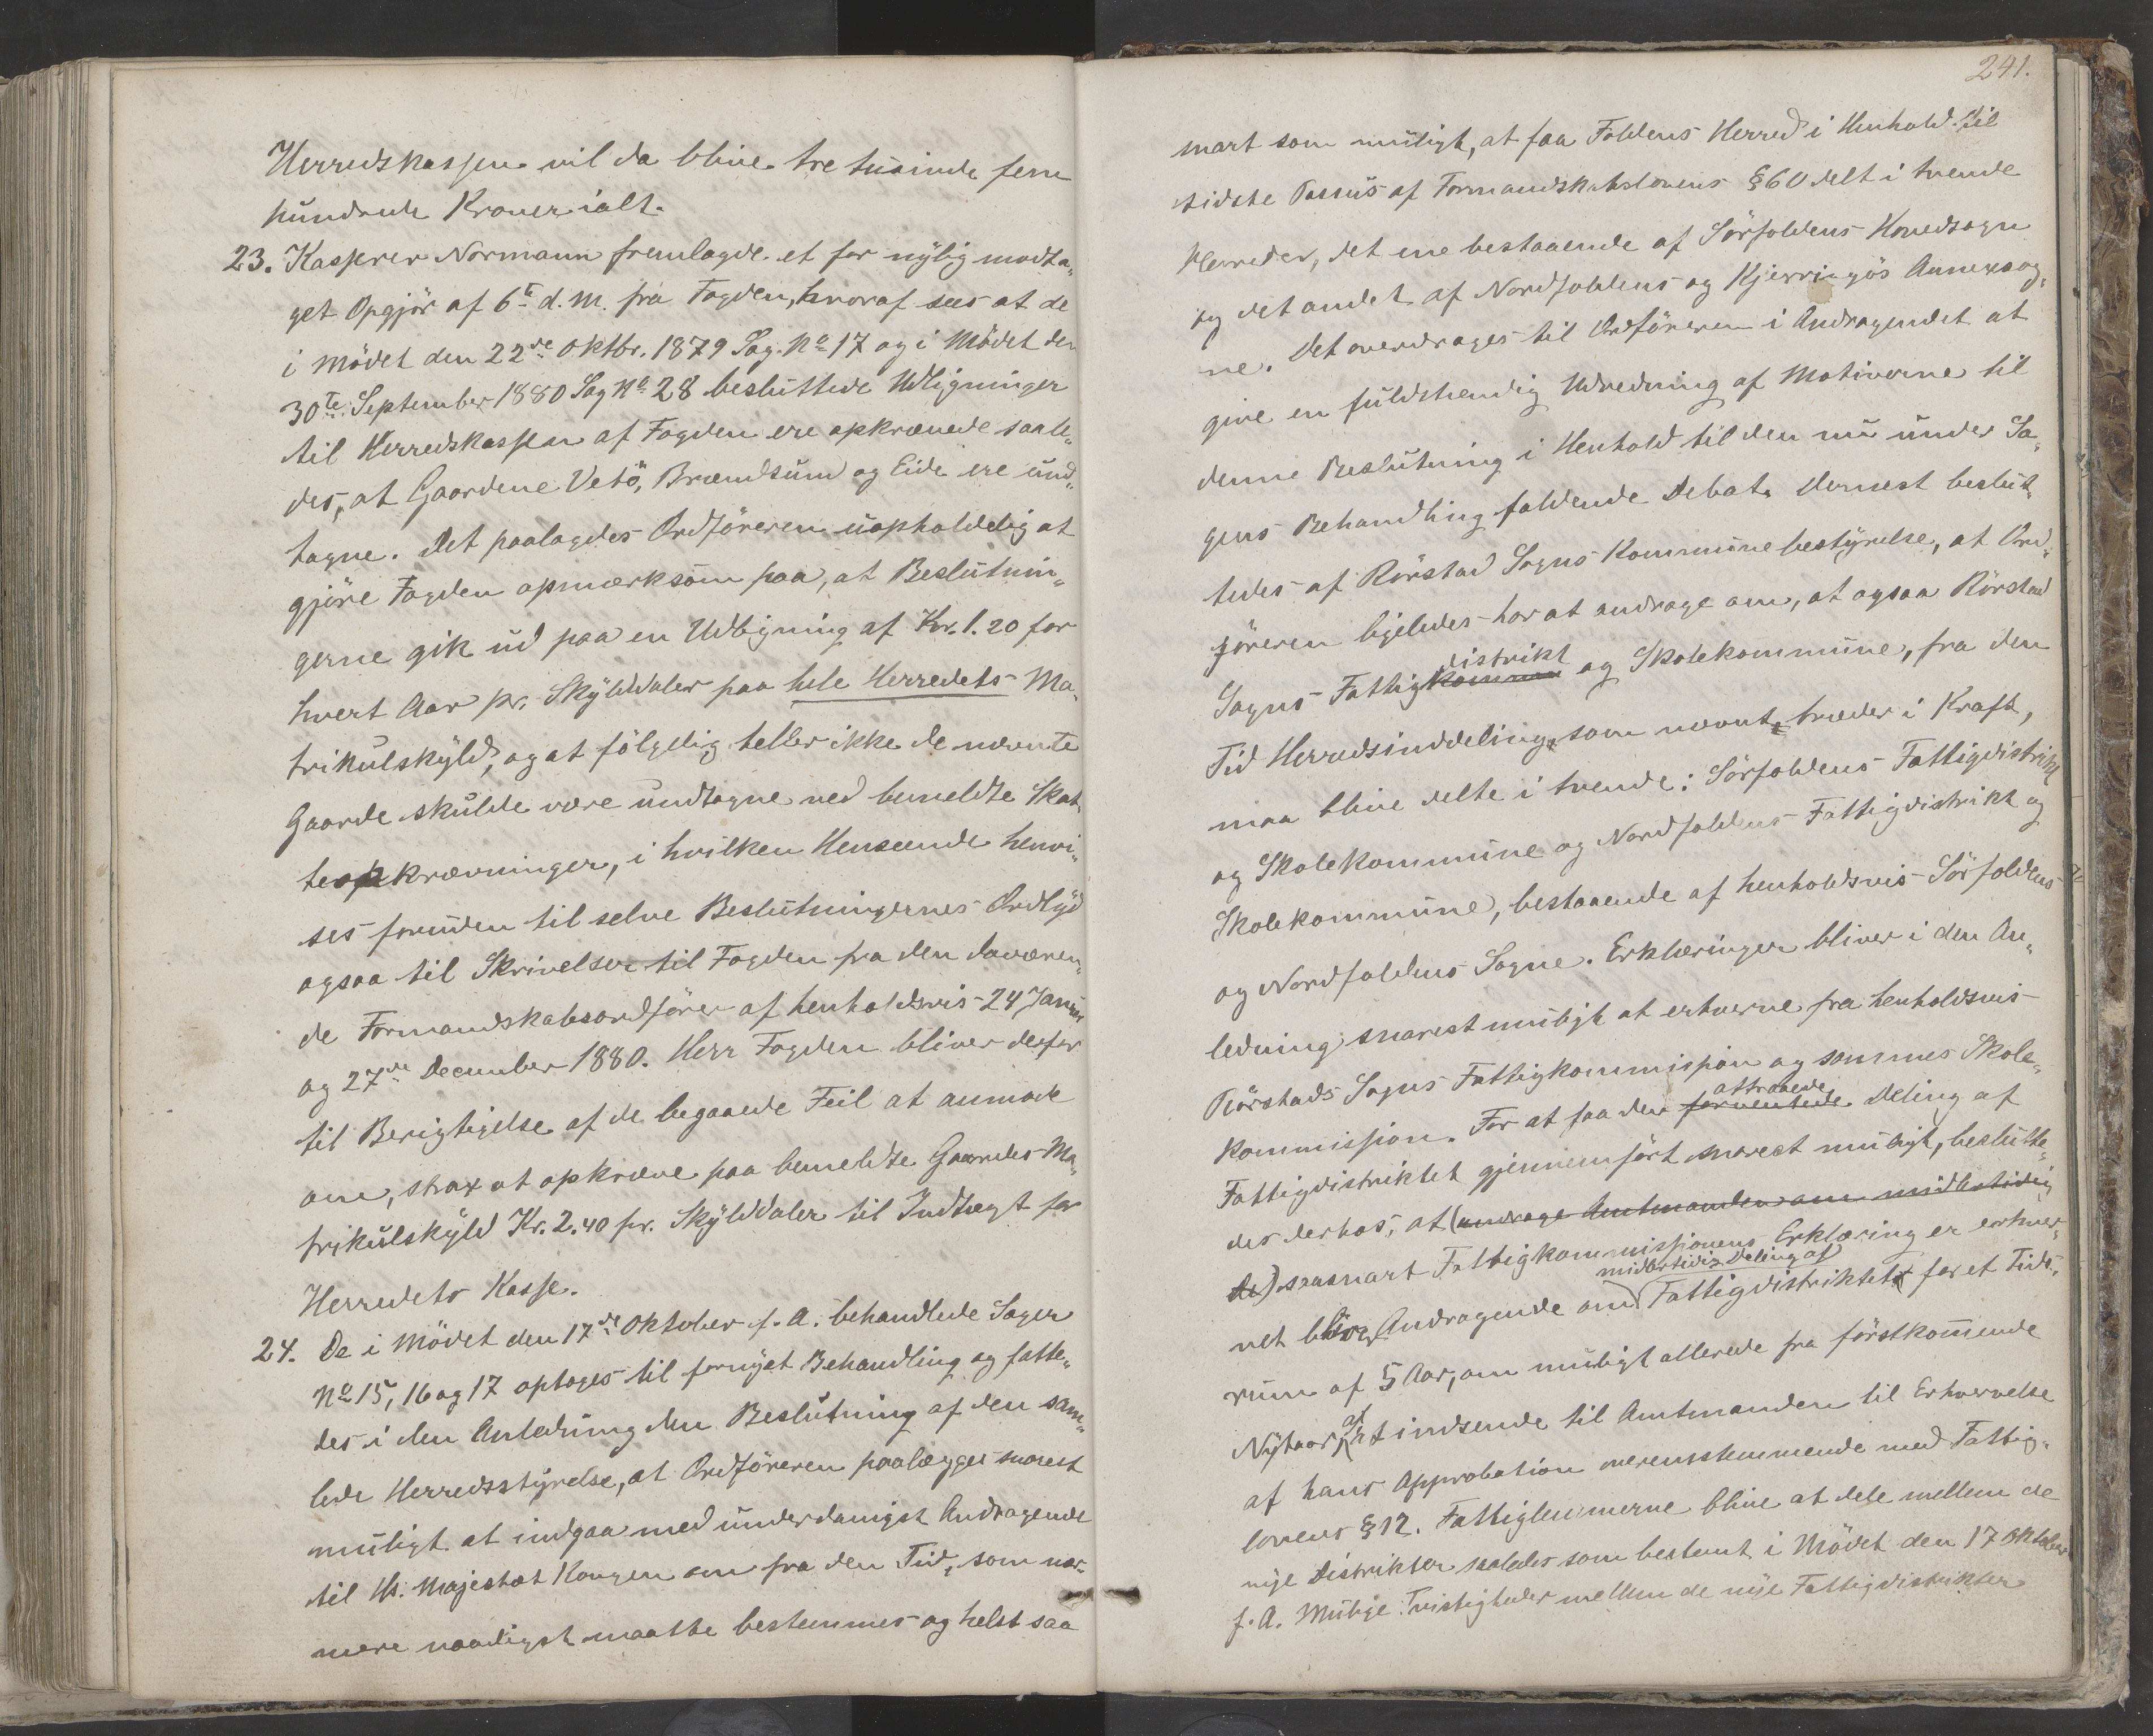 Herredskassen vil da blive tre tusinde fem
hundrede Kroner ialt.
23. Kasserer Normann fremlagde et for nylig modta-
get Opgjör af 6te d. M. fra Fogden, hvoraf sees at de
i Mödet den 22de Oktbr. 1879 Sag No 17 og i Mödet den
30te September 1880 Sag No 28 besluttede Udligninger
til Herredskassen af Fogden ere opkrævede saale-
des, at Gaardene Vetö, Brændsund og Eide ere und-
tagne. Det paalagdes Ordföreren uopholdelig at
gjöre Fogden opmærksom paa, at Beslutnin-
gerne gik ud paa en Udligning af Kr. 1.20 for
hvert Aar pr. Skylddaler paa hele Herredets Ma-
trikulskyld, og at fölgelig heller ikke de nævnte
Gaarde skulde være undtagne ved bemeldte Skat-
teopkrævninger, i hvilken Henseende henvi-
ses foruden til selve Beslutningernes Ordlyd
ogsaa til Skrivelser til Fogden fra den daværen-
de Formandskabsordförer af henholdsvis 24 Januar
og 27de December 1880. Herr Fogden bliver derfor
til Berigtigelse af de begaaede Feil at anmode
om, strax at opkræve paa bemeldte Gaardes Ma-
trikulskyld Kr. 2.40 pr. Skylddaler til Indtægt for
Herredets Kasse.
24. De i Mödet den 17de Oktober f. A. behandlede Sager
No 15, 16 og 17 optoges til fornyet Behandling og fatte-
des i den Anledning den Beslutning af den sam-
lede Herredsstyrelse, at Ordföreren paalægges snarest
muligt at indgaa med underdanigst Andragende
til Hs. Majestæt Kongen om fra den Tid, som nær-
mere naadigst maatte bestemmes og helst saa
241.
snart som muligt, at faa Foldens Herred i Henhold til
sidste Passus af Formandskabslovens §60 delt i tvende
Herreder, det ene bestaaende af Sörfoldens Hovedsogn
og det andet af Nordfoldens og Kjerringös Annexsog-
ne. Det overdrages til Ordföreren i Andragendet at
give en fuldstændig Udredning af Motiverne til
denne Beslutning i Henhold til den nu under Sa-
gens Behandling faldende Debat. Dernest beslut-
tedes af Rörstad Sogns Kommunebestyrelse, at Ord-
föreren ligeledes har at andrage om, at ogsaa Rörstad
distrikt
Sogns Fattigkommu og Skolekommune, fra den
Tid Herredsinddeling, som nævnt, træder i Kraft,
maa blive delte i tvende: Sörfoldens Fattigdistrikt
og Skolekommune og Nordfoldens Fattigdistrikt og
Skolekommune, bestaaende af henholdsvis Sörfoldens
og Nordfoldens Sogne. Erklæringer bliver i den An-
ledning snarest muligt at erhverve fra henholdsvis
Rörstads Sogns Fattigkommission og sammes Skole-
attraaede
kommission. For at faa den forventede Deling af
Fattigdistriktet gjennemfört snarest muligt, beslutte-
des derhos, at (andrage Amtmanden om midlertidig
de) saasnart Fattigkommissionens Erklæring er erhver-
midlertidig Deling af
vet bliver Andragende om Fattigdistriktet for et Tids-
rum af 5 Aar, om muligt allerede fra förstkommende
at
Nytaar, at indsende til Amtmanden til Erhvervelse
af hans Approbation overensstemmende med Fattig-
lovens §12. Fattiglemmerne blive at dele mellem de
nye Distrikter saaledes som bestemt i Mödet den 17 Oktober
f. A. Mulige Tvistigheder mellem de nye Fattigdistrikter